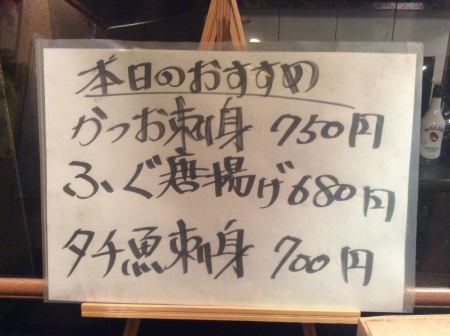 本日のおすすめ
かつお刺身 750円
ふぐ唐揚げ 680円
タチ魚刺身 700円
MALIBU